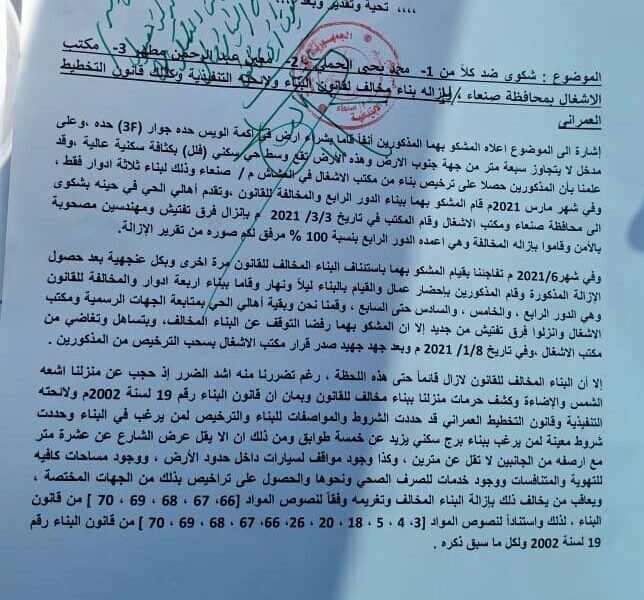 ،،،، تحية وتقدير وبعد
الموضوع : شكوى ضد كلاً من 1- محمد يحيى الحملي ، 2- معين عبدالرحمن مطهر 3- مكتب
الاشغال بمحافظة صنعاء ، بإزاله بناء مخالف لقانون البناء ولائحته التنفيذية وكذلك قانون التخطيط
العمراني
إشارة الى الموضوع اعلاه المشكو بهما المذكورين آنفاً قاما بشراء ارض في اكمة الويس حده جوار (3F) حده ،وعلى
مدخل لا يتجاوز سبعة متر من جهة جنوب الارض وهذه الارض تقع وسط حي سكني (فلل) بكثافة سكنية عالية ،وقد
علمنا بأن المذكورين حصلا على ترخيص بناء من مكتب الاشغال في العشاش م / صنعاء وذلك لبناء ثلاثة ادوار فقط ،
وفي شهر مارس 2021م قام المشكو بهما ببناء الدور الرابع والمخالفة للقانون ،وتقدم أهالي الحي في حينه بشكوى
الى محافظة صنعاء ومكتب الاشغال وقام المكتب في تاريخ 3/3/ 2021 م بإنزال فرق تفتيش ومهندسين مصحوبة
بالأمن وقاموا بإزاله المخالفة وهي اعمده الدور الرابع بنسبة 100 % مرفق لكم صوره من تقرير الإزالة.
وفي شهر2021/6 م تفاجئنا بقيام المشكو بهما باستئناف البناء المخالف للقانون مرة اخرى وبكل عنجهية بعد حصول
الإزالة المذكورة وقام المذكورين بإحضار عمال والقيام بالبناء ليلاً ونهار وقاما ببناء اربعة ادوار والمخالفة للقانون
وهي الدور الرابع ، والخامس ، والسادس حتى السابع ، وقمنا نحن وبقية أهالي الحي بمتابعة الجهات الرسمية ومكتب
الاشغال وانزلوا فرق تفتيش من جديد إلا ان المشكو بهما رفضا التوقف عن البناء المخالف، وبتساهل وتغاضي من
مكتب الاشغال ،وفي تاريخ 1/8/ 2021 م وبعد جهد جهيد صدر قرار مكتب الاشغال بسحب الترخيص من المذكورين .
إلا أن البناء المخالف للقانون لازال قائماً حتى هذه اللحظة ، رغم تضررنا منه اشد الضرر إذ حجب عن منزلنا اشعه
الشمس والإضاءة وكشف حرمات منزلنا ببناء مخالف للقانون وبمان ان قانون البناء رقم 19 لسنة 2002م ولائحته
التنفيذية وقانون التخطيط العمراني قد حددت الشروط والمواصفات للبناء والترخيص لمن يرغب في البناء وحددت
شروط معينة لمن يرغب ببناء برج سكني يزيد عن خمسة طوابق ومن ذلك ان الا يقل عرض الشارع عن عشرة متر
مع ارصفه من الجانبين لا تقل عن مترين ، وكذا وجود مواقف لسيارات داخل حدود الأرض ، ووجود مساحات كافيه
للتهوية والمتنافسات ووجود خدمات للصرف الصحي ونحوها والحصول على تراخيص بذلك من الجهات المختصة ،
ويعاقب من يخالف ذلك بإزالة البناء المخالف وتغريمه وفقاً لنصوص المواد [66، 67 ، 68 ، 69 ، 70 ] من قانون
البناء ، لذلك واستناداً لنصوص المواد [3، 4 ، 5 ، 18 ، 20 ، 26، 66، 67 ، 68 ، 69 ، 70 ] من قانون البناء رقم
19 لسنة 2002 ولكل ما سبق ذكره .